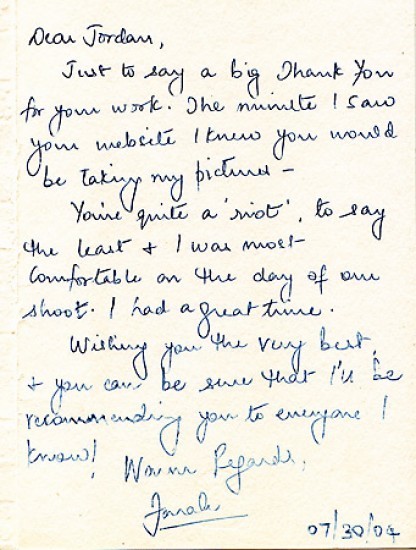 Dear Jordan,
Just to say a big Thank You
for your work. The minute I saw
your website I knew you would
be taking my pictures –
You're quite a 'riot', to say
the least & I was most
comfortable on the day of our
shoot. I had a great time.
Wishing you the very best,
& you can be sure that I'll be
recommending you to everyone I
know!
Warm Regards,
07/30/04